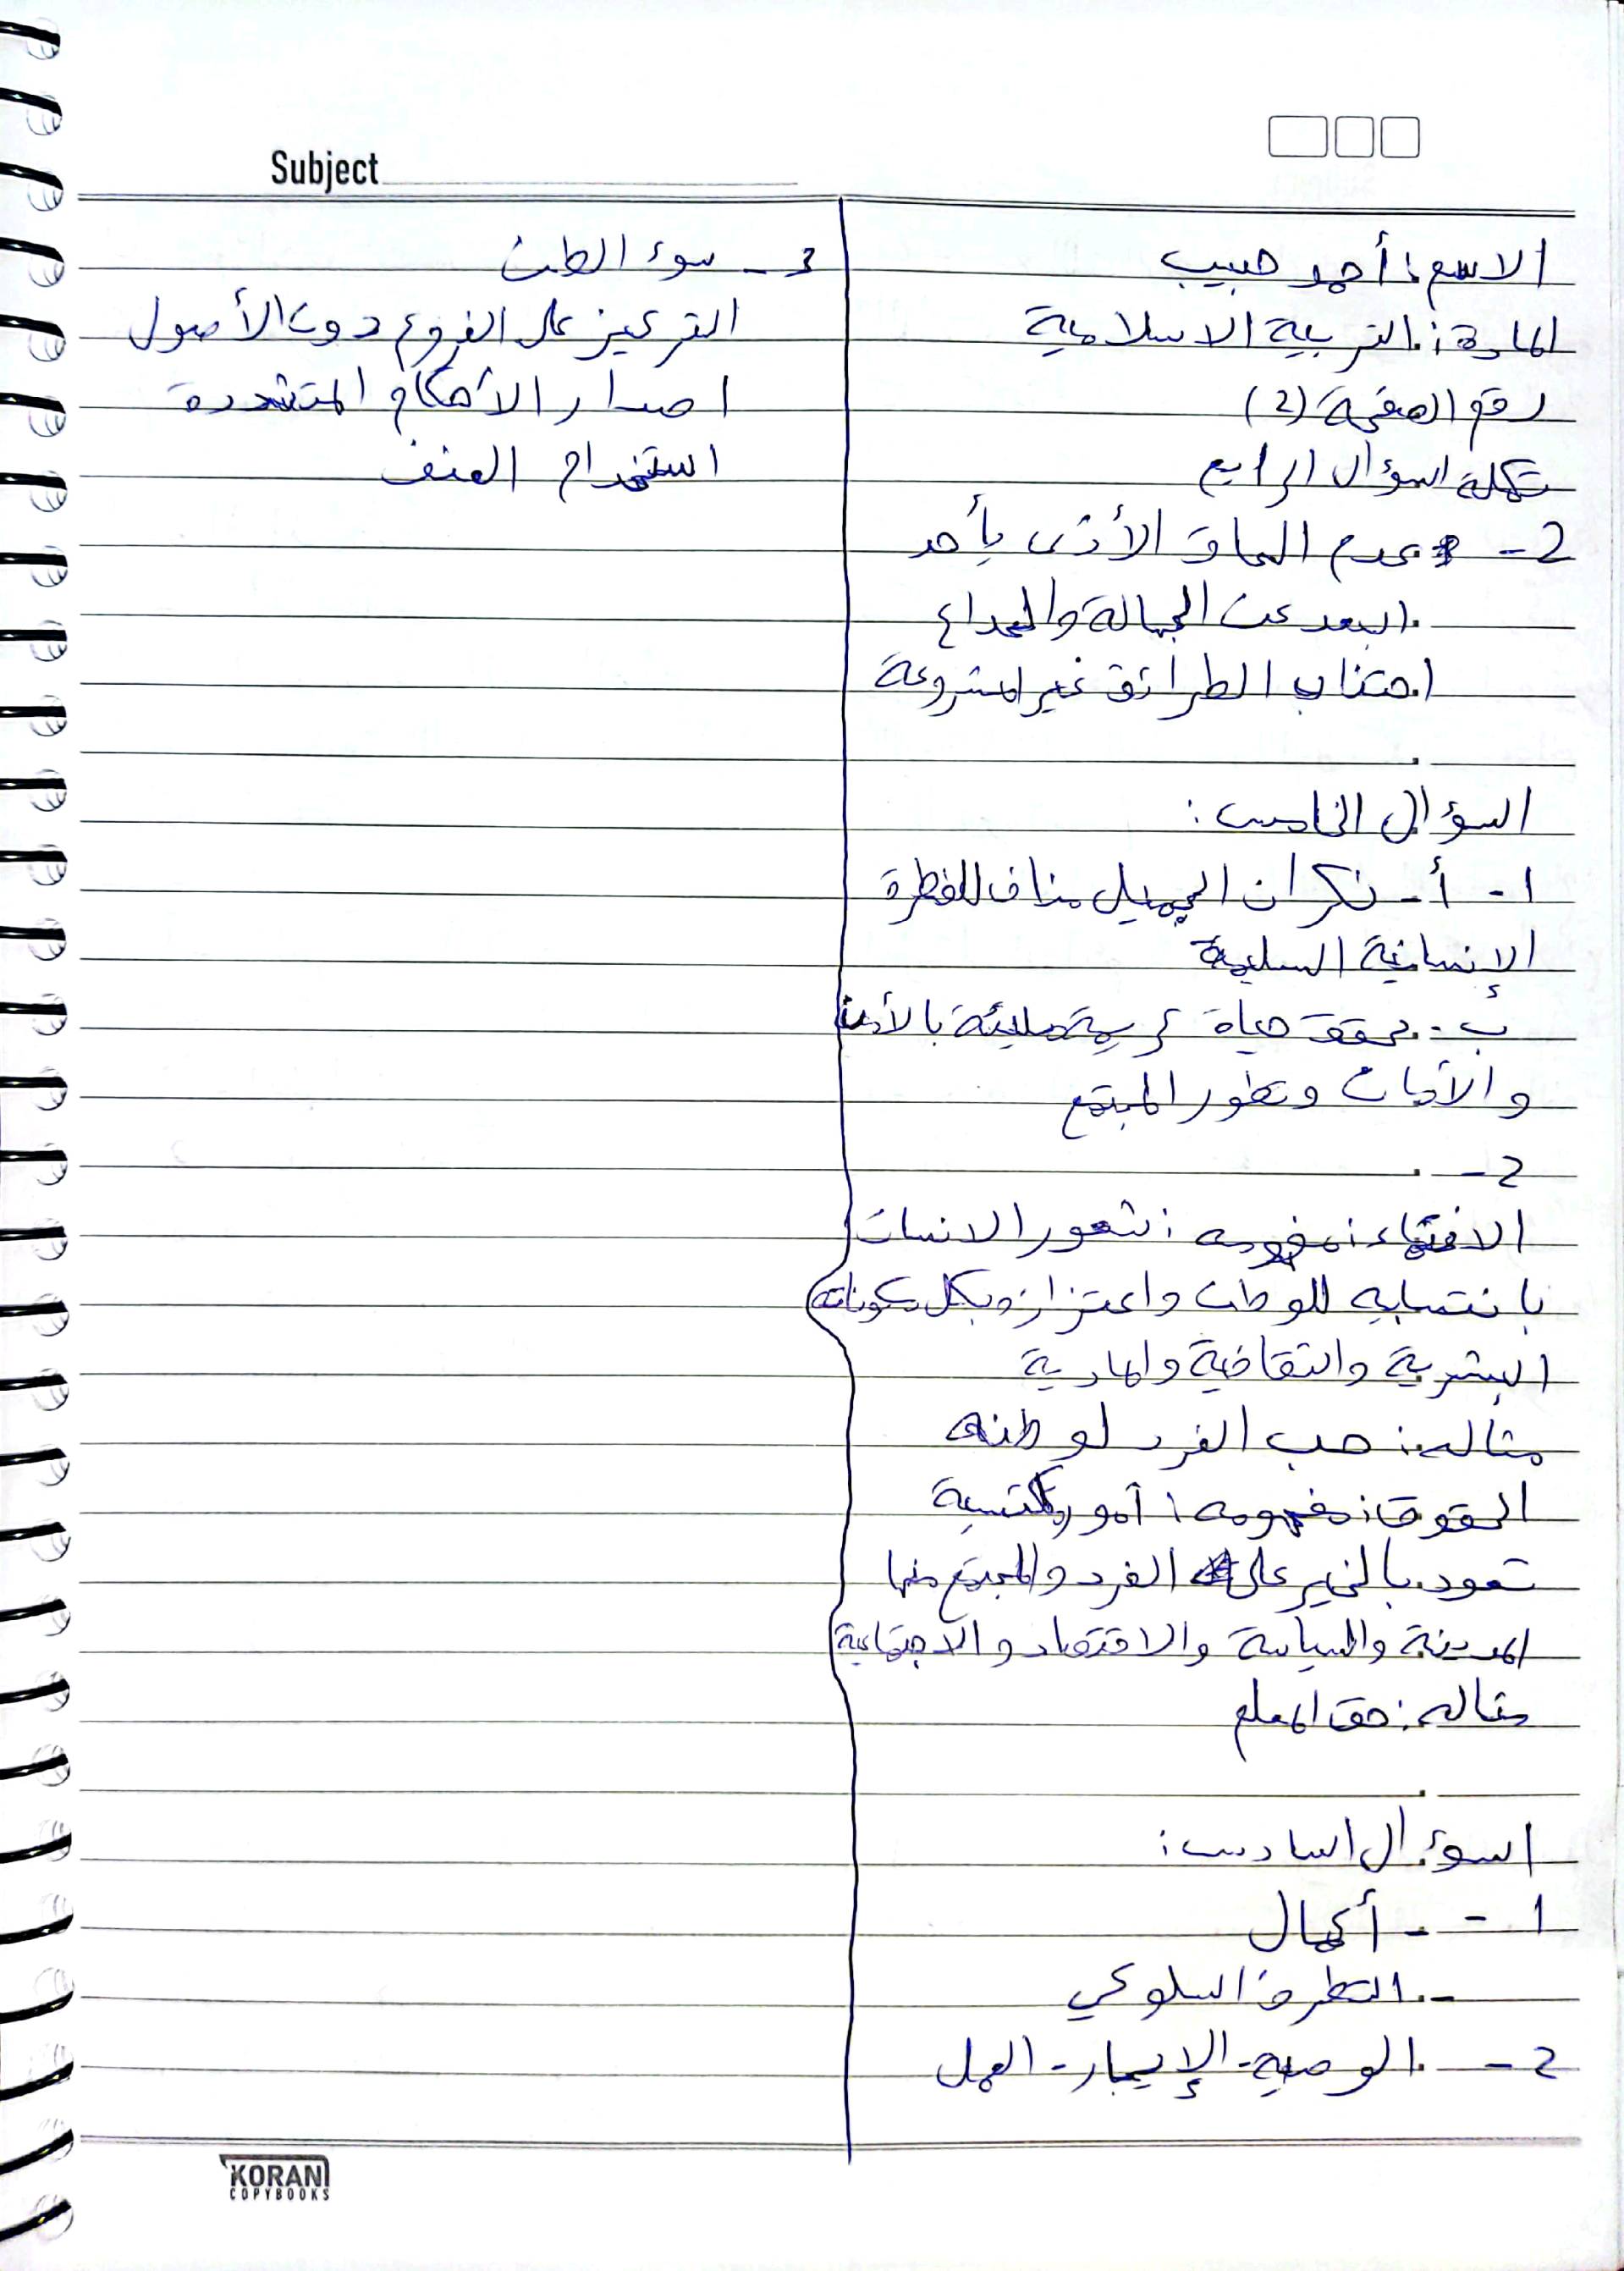 Subject
الاسم: أحمد حبيب
المادة: التربية الاسلامية
رقم الصفحة (2)
تكملة السؤال الرابع
2- عدم الحاق الأذى بأحد
البعد عن الجهالة والخداع
اجتناب الطرائق غير المشروعة
السؤال الخامس:
1- أ- نكران الجميل مناف للفطرة
الإنسانية السليمة
ب- تحقق حياة كريمة مليئة بالأمن
والأمان وتطور المجتمع
2-
الانتماء: مفهومه: شعور الانسان
بانتسابه للوطن واعتزازه بكل مكوناته
البشرية والثقافية والمادية
مثاله: حب الفرد لوطنه
الحقوق: مفهومه: أمور مكتسبة
تعود بالخير على الفرد والمجتمع منها
المدينة والسياسة والاقتصاد والاجتماعية
مثاله: حق المعلم
السؤال السادس:
1- - أكمال
- التطرف السلوكي
2- الوصية - الإيجار - العمل
3- سوء الظن
التركيز على الفروع دون الأصول
اصدار الأحكام المتشددة
استخدام العنف
KORAN
COPYBOOKS